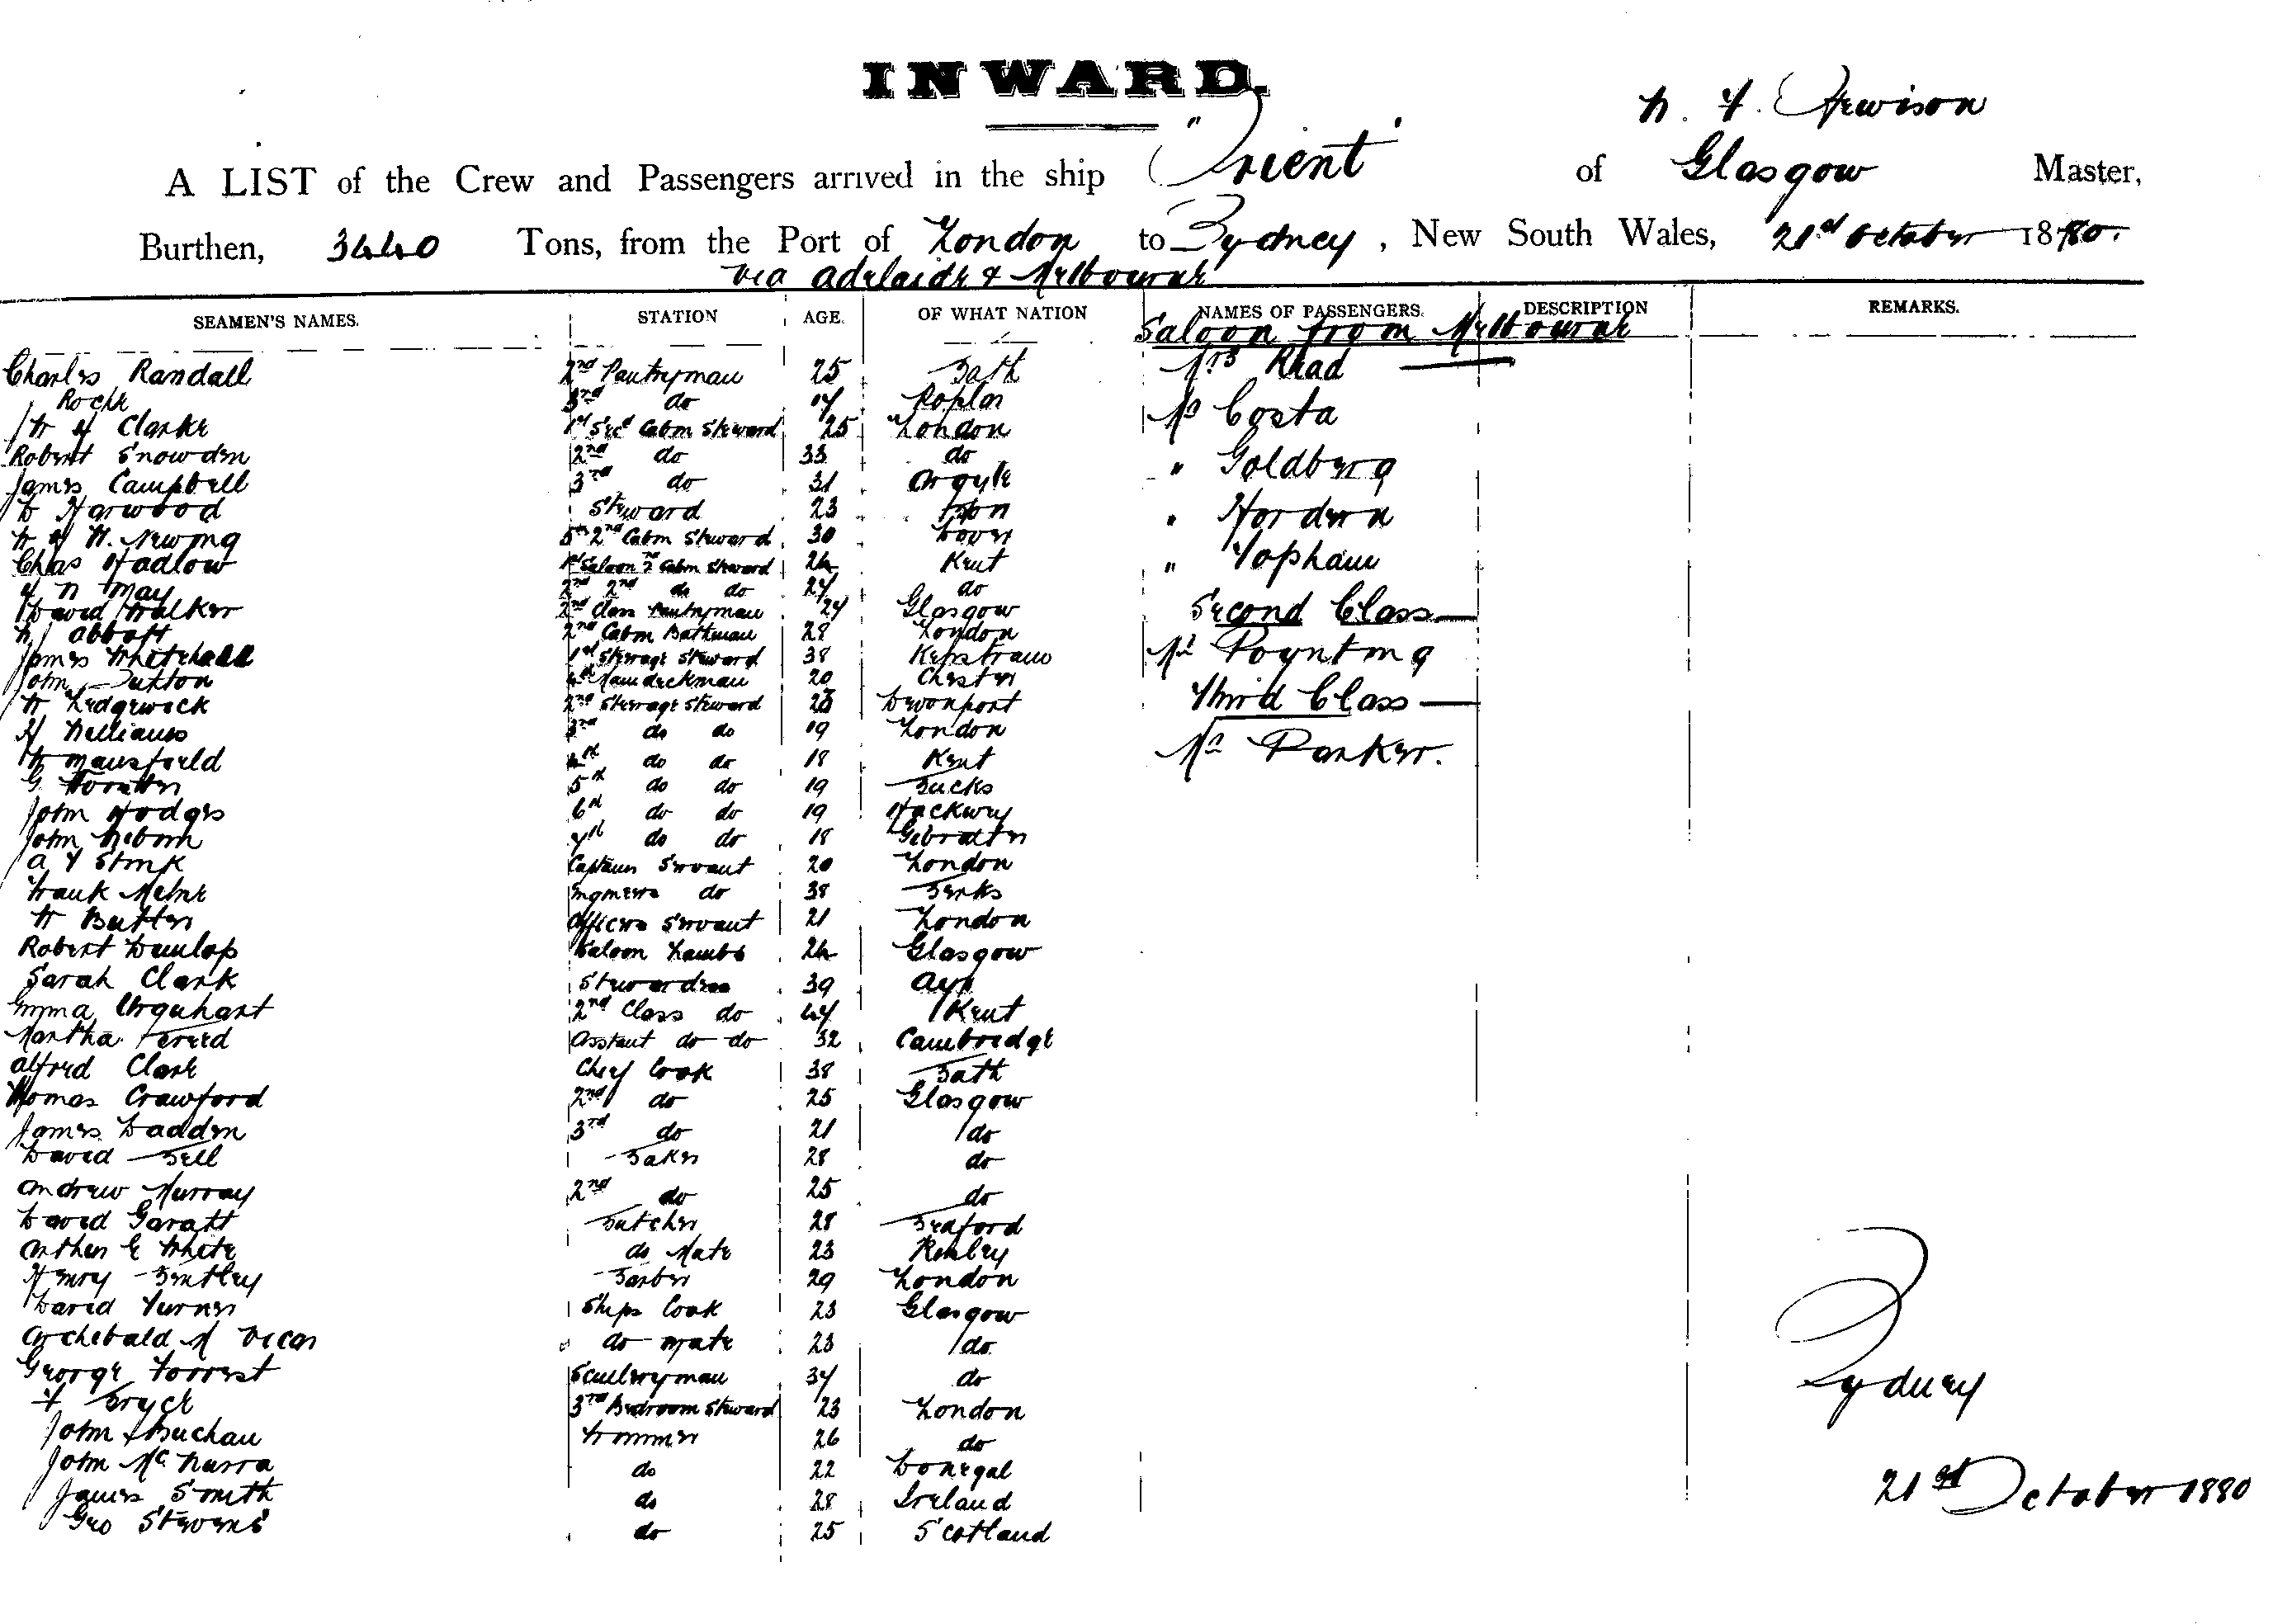 INWARD.
W. F. Hewison
A LIST of the Crew and Passengers arrived in the ship "Orient" of Glasgow Master,
Burthen, 3440 Tons, from the Port of London to Sydney, New South Wales, 21st October 1880.
via Adelaide & Melbourne
SEAMEN'S NAMES. STATION AGE. OF WHAT NATION NAMES OF PASSENGERS. DESCRIPTION REMARKS.
Saloon from Melbourne
Charles Randall 2nd Pantryman 25 Bath Mrs Read
Roche 3rd do 17 Poplar Mr Costa
W H Clarke 1st Sec'd Cabin Steward 25 London
Robert Snowden 2nd do 33 do " Goldberg
James Campbell 3rd do 31 Argyle
Harwood Steward 23 " Hordern
Newing 5th 2nd Cabin Steward 30 Dover
Chas Hadlow Saloon 2nd Cabin Steward 24 Kent " Topham
May 2nd 2nd do do 27 do
David Walker 2nd Class Pantryman 27 Glasgow Second Class
W Abbott 2nd Cabin Bathman 28 London
James Whitehall 1st Steerage Steward 38 Mr Poynting
John Sutton 20 Chester
W Ledgewick 2nd Steerage Steward 23 Devonport Third Class
H Williams 3rd do do 19 London
W Mansfield 4th do do 18 Kent Mr Parker.
G 5th do do 19 Bucks
John Hodges 6th do do 19 Hackney
John 7th do do 18 Gibralter
A T Stink Captains Servant 20 London
Frank Milne Engineers do 38 Berks
W Butter Officers Servant 21 London
Robert Dunlop Saloon Lamps 24 Glasgow
Sarah Clark Stewardess 39 Ayr
Emma Urquhart 2nd Class do 47 Kent
Martha Asstant do do 32 Cambridge
Alfred Clark Chief Cook 38 Bath
Thomas Crawford 2nd do 25 Glasgow
James Dadden 3rd do 21 do
David Bell Baker 28 do
Andrew Murray 2nd do 25 do
David Garatt Butcher 28
Arthur E White do Mate 23
Henry Bentley Barber 29 London
David Turner Ships Cook 23 Glasgow
Archibald M Vicar do mate 23 do
George Forrest Sculleryman 37 do
F Bryce 3rd Bedroom Steward 23 London
John Buchan Trimmer 26 do
John Mc do 22 Donegal
James Smith do 28 Ireland
Geo Stevens do 25 Scotland
Sydney
21st October 1880